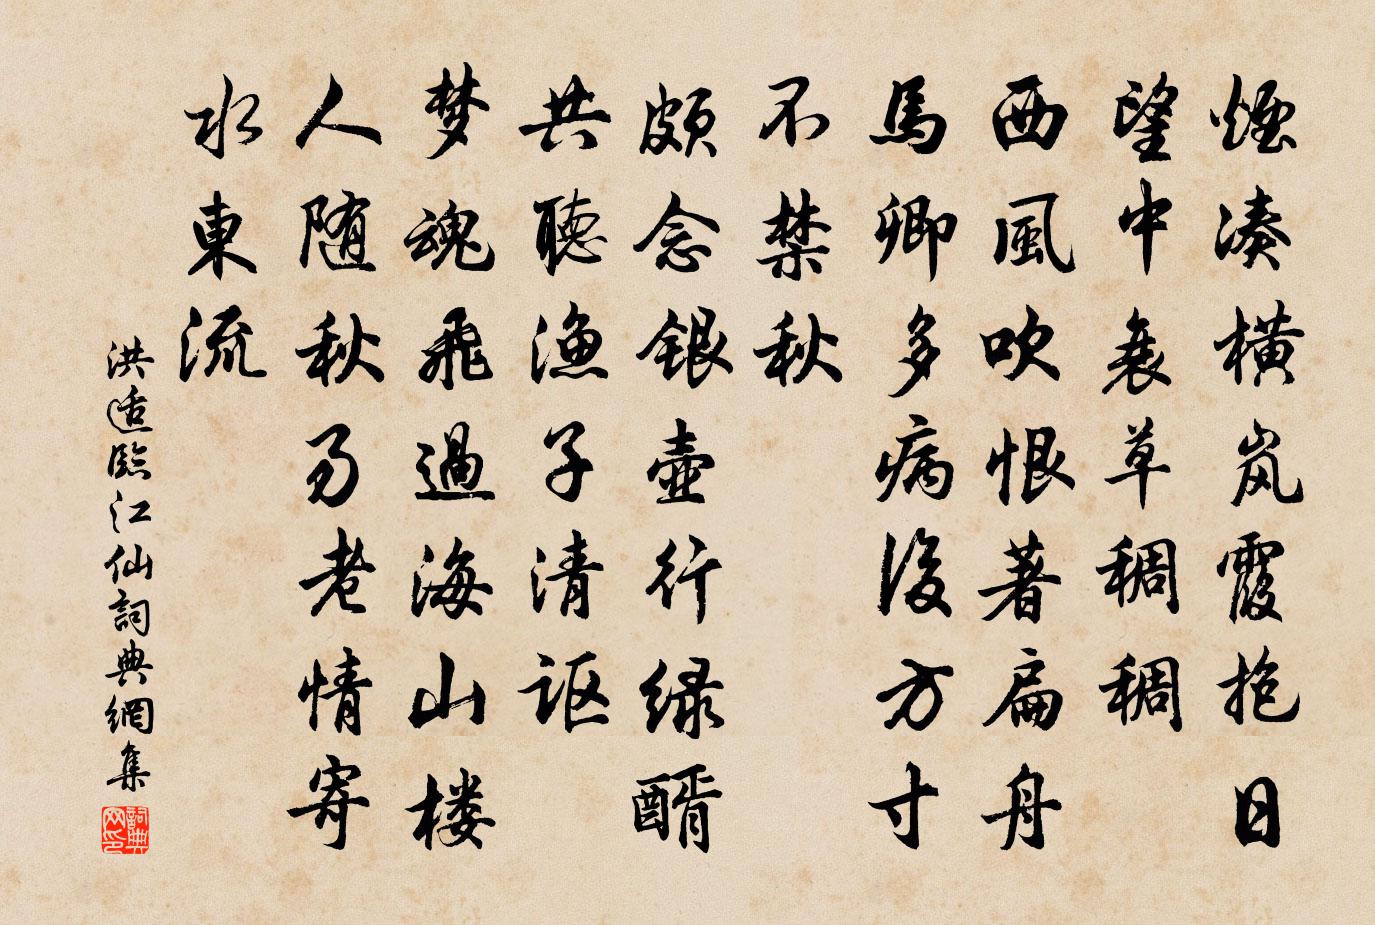 煙湊橫岚霞抱日
望中衰草稠稠
西風吹恨著扁舟
馬卿多病後方寸
不禁秋
頗念银壺行绿醑
共聽漁子清讴
梦魂飛過海山楼
人随秋易老情寄
水東流
洪适臨江仙詞典網集
詞典网印